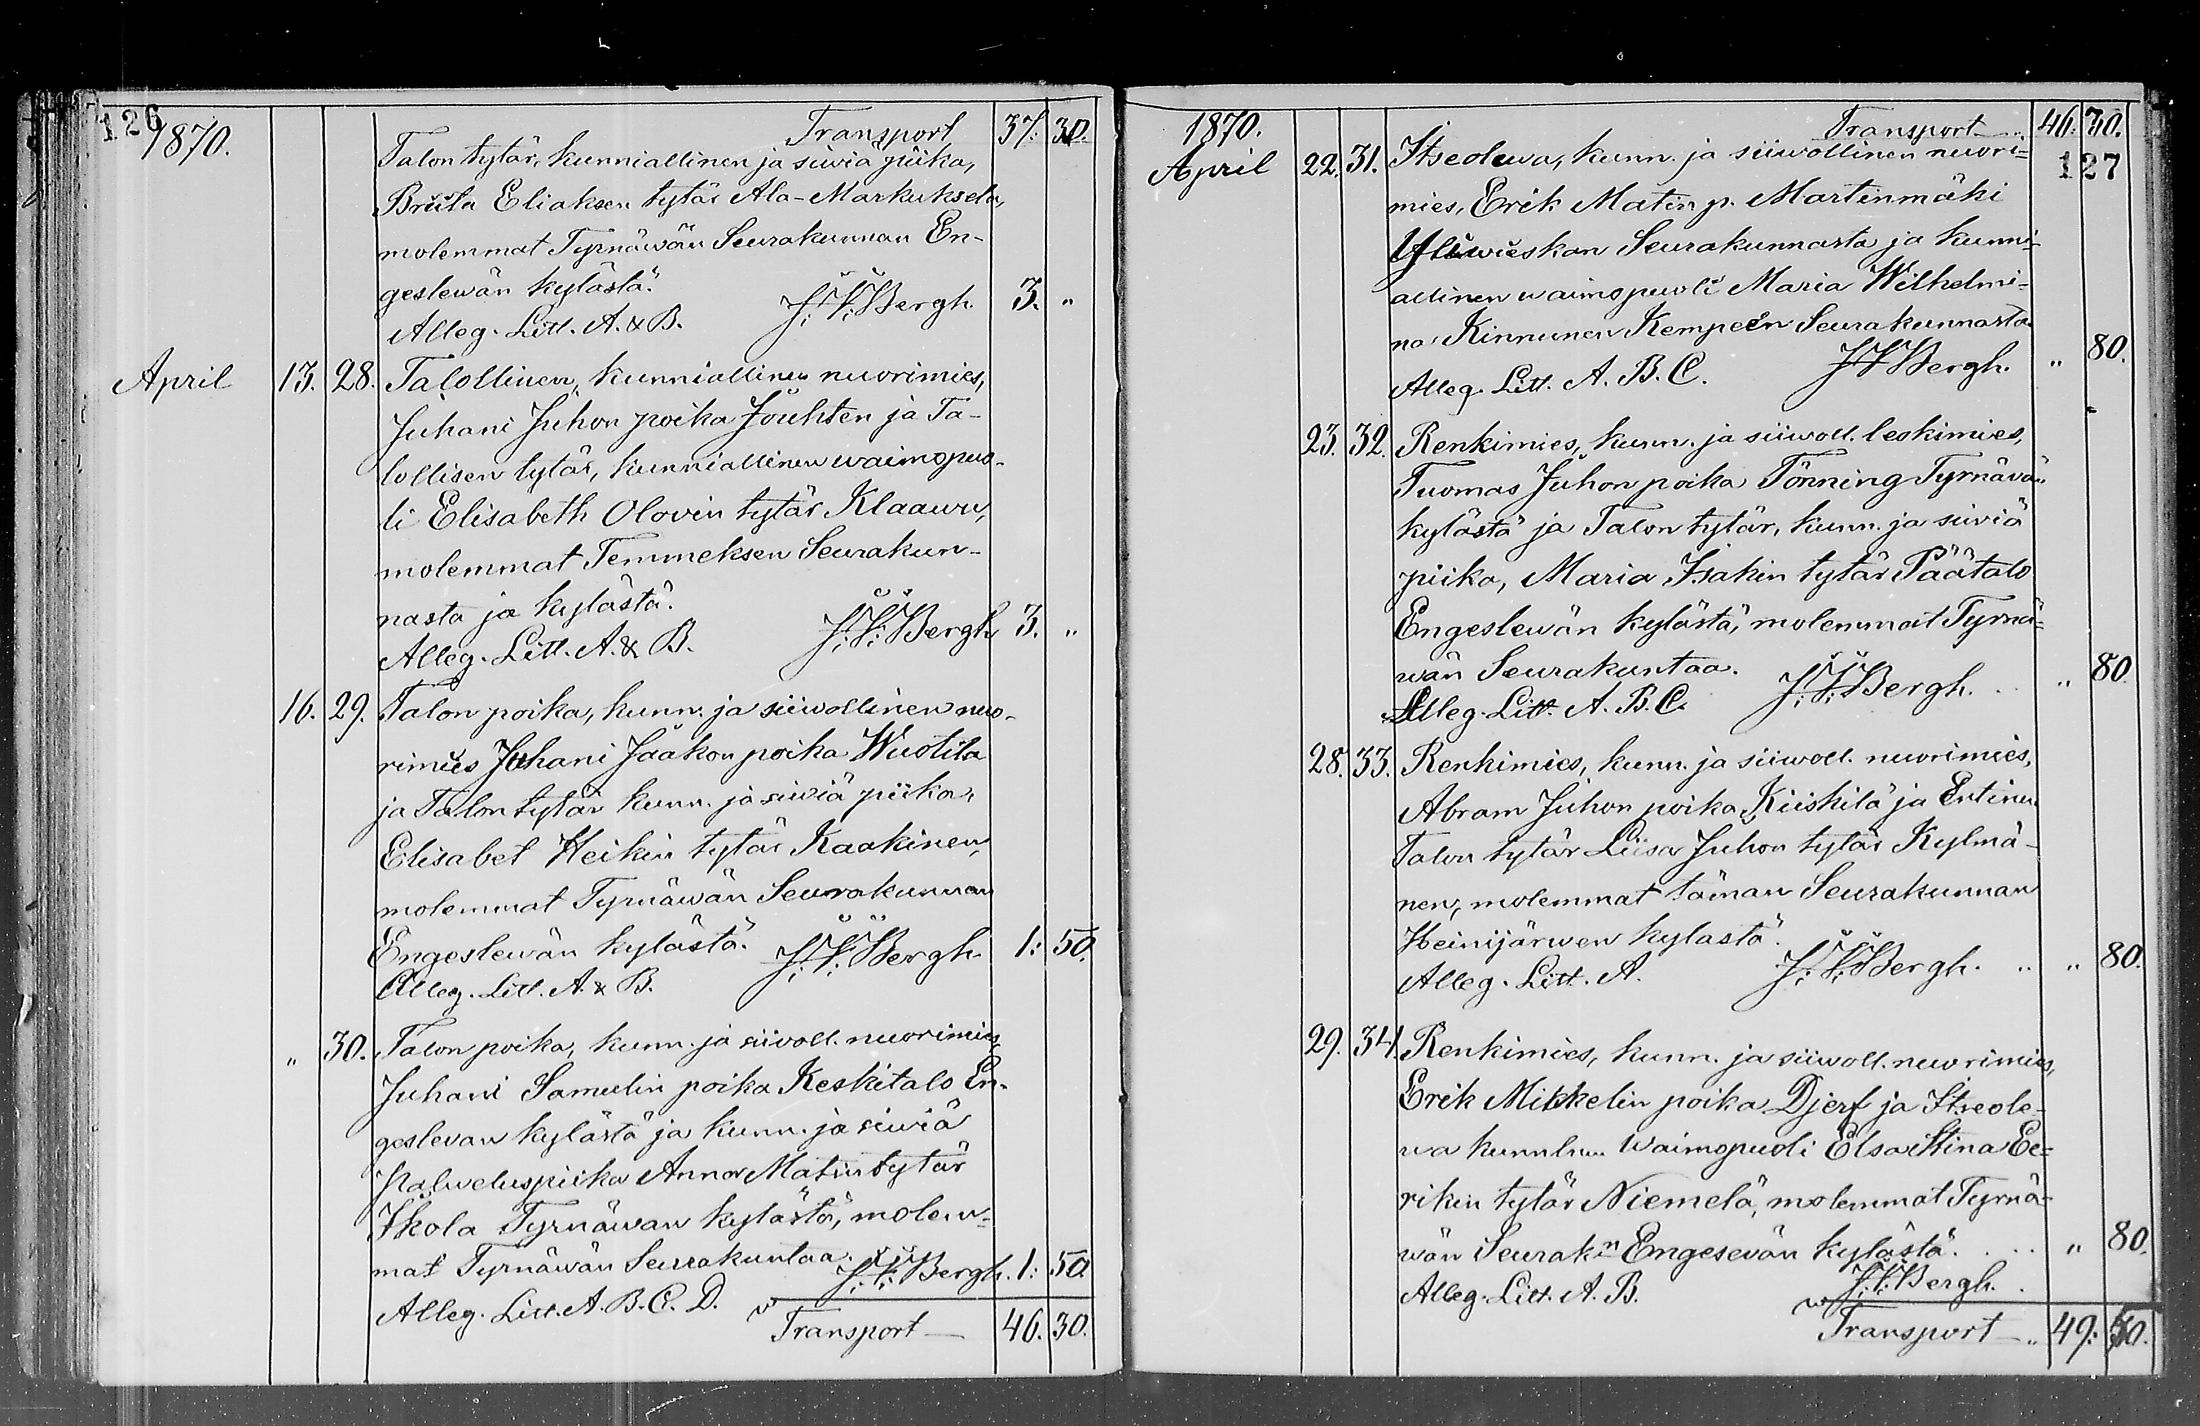 126
1870.
Transport 37: 30.
Talon tytär, kunniallinen ja siwiä piika,
Briita Eliaksen tytär Ala-Markuksela,
molemmat Tyrnäwän Seurakunnan En-
geslewän kylästä.
J. F. Bergh. 3. "
Alleg. Litt. A. & B.
April 13. 28. Talollinen, kunniallinen nuorimies,
Juhani Juhon poika Jouhten ja Ta-
lollisen tytär, kunniallinen waimopuo-
li Elisabeth Olovin tytär Klaawu,
molemmat Temmeksen Seurakun-
nasta ja kylästä.
J. F. Bergh 3. "
Alleg. Litt. A. & B.
16. 29. Talon poika, kunn. ja siiwollinen nuo-
rimies Juhani Jaakon poika Wuotila
ja Talon tytär kunn. ja siwiä piika,
Elisabet Heikin tytär Kaakinen,
molemmat Tyrnäwän Seurakunnan
Engeslewän kylästä. J. F. Bergh. 1: 50.
Alleg. Litt. A. & B.
" 30. Talon poika, kunn. ja siivoll. nuorimies,
Juhani Samulin poika Keskitalo En-
geslevan kylästä ja kunn. ja siwiä
Palweluspiika Anna Matin tytär
Iskola Tyrnäwan kylästä, molem-
mat Tyrnäwän Seurakuntaa. J. F. Bergh. 1: 50.
Alleg. Litt. A. B. C. D.
Transport 46. 30.
1870.
Transport 46: 30.
127
April 22. 31. Itseolewa, kunn. ja siiwollinen nuori-
mies, Erik Matin p. Martinmäki
Yliwieskan Seurakunnasta ja kunni-
allinen waimopuoli Maria Wilhelmi-
na Kinnunen Kempeen Seurakunnasta
J F Bergh. " 80.
Alleg. Litt. A. B. C.
23. 32. Renkimies, kunn. ja siiwoll. leskimies,
Tuomas Juhon poika Tönning Tyrnävän
kylästä ja Talon tytär, kunn. ja siiviä
piika, Maria Isakin tytär Päätalo
Engeslewän kylästä, molemmat Tyrnä-
wän Seurakuntaa. J. F. Bergh. " 80.
Alleg. Litt. A. B. C.
28. 33. Renkimies, kunn. ja siiwoll. nuorimies,
Abram Juhon poika Kiiskilä ja Entinen
Talon tytär Liisa Juhon tytär Kylmä-
nen, molemmat täman Seurakunnan
Heinijärwen kylastä.
J. F. Bergh. " 80.
Alleg. Litt. A.
29. 34. Renkimies, kunn. ja siiwoll. nuorimies,
Erik Mikkelin poika Djerf ja Itseole-
wa Waimopuoli Elsa Stina Ee-
rikin tytär Niemelä, molemmat Tyrnä-
wän Seurakn Engesevän kylästä. " 80.
J. F. Bergh.
Alleg. Litt. A. B.
Transport 49: 50.